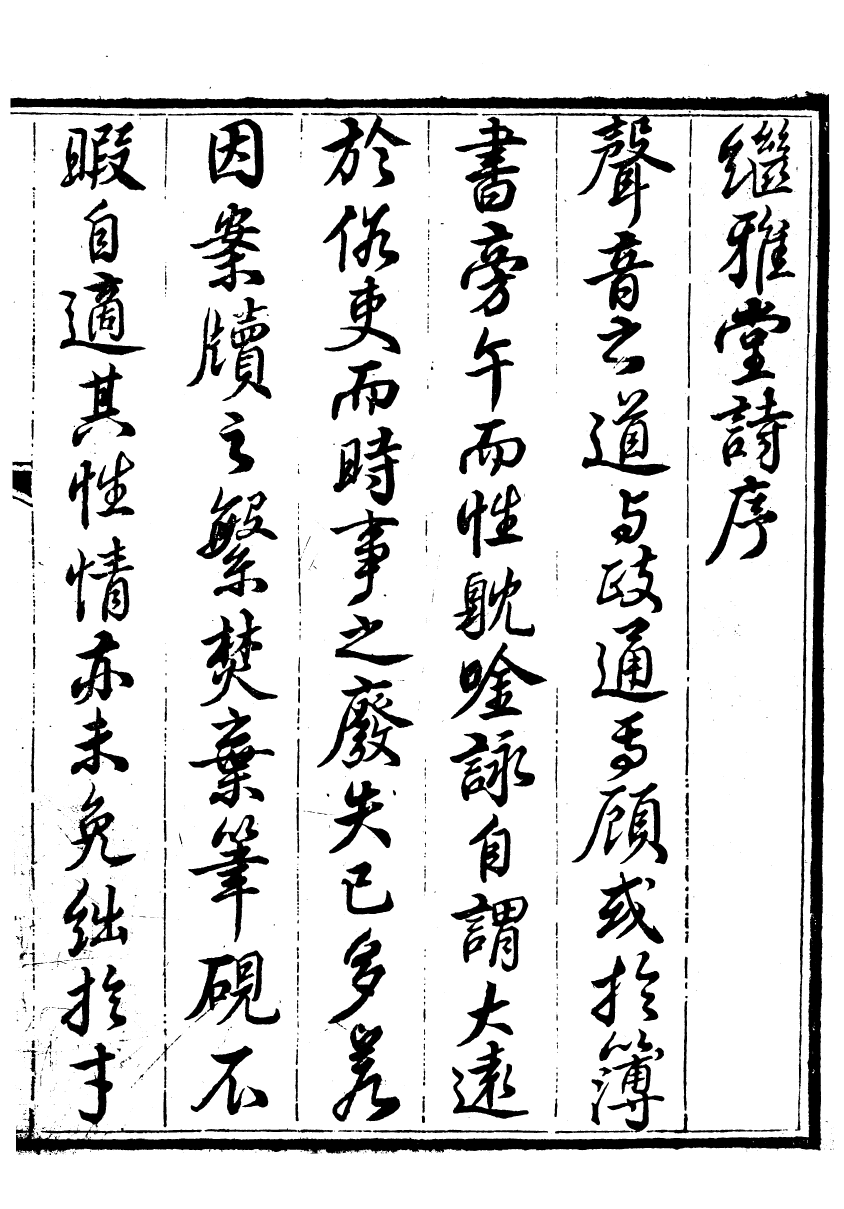 繼雅堂詩序
聲音之道与政通焉顧或於簿
書旁午而性耽唫詠自謂大遠
於俗吏而時事之廢失已多若
因案牘之繁焚棄筆硯不
暇自適其性情亦未免絀於才